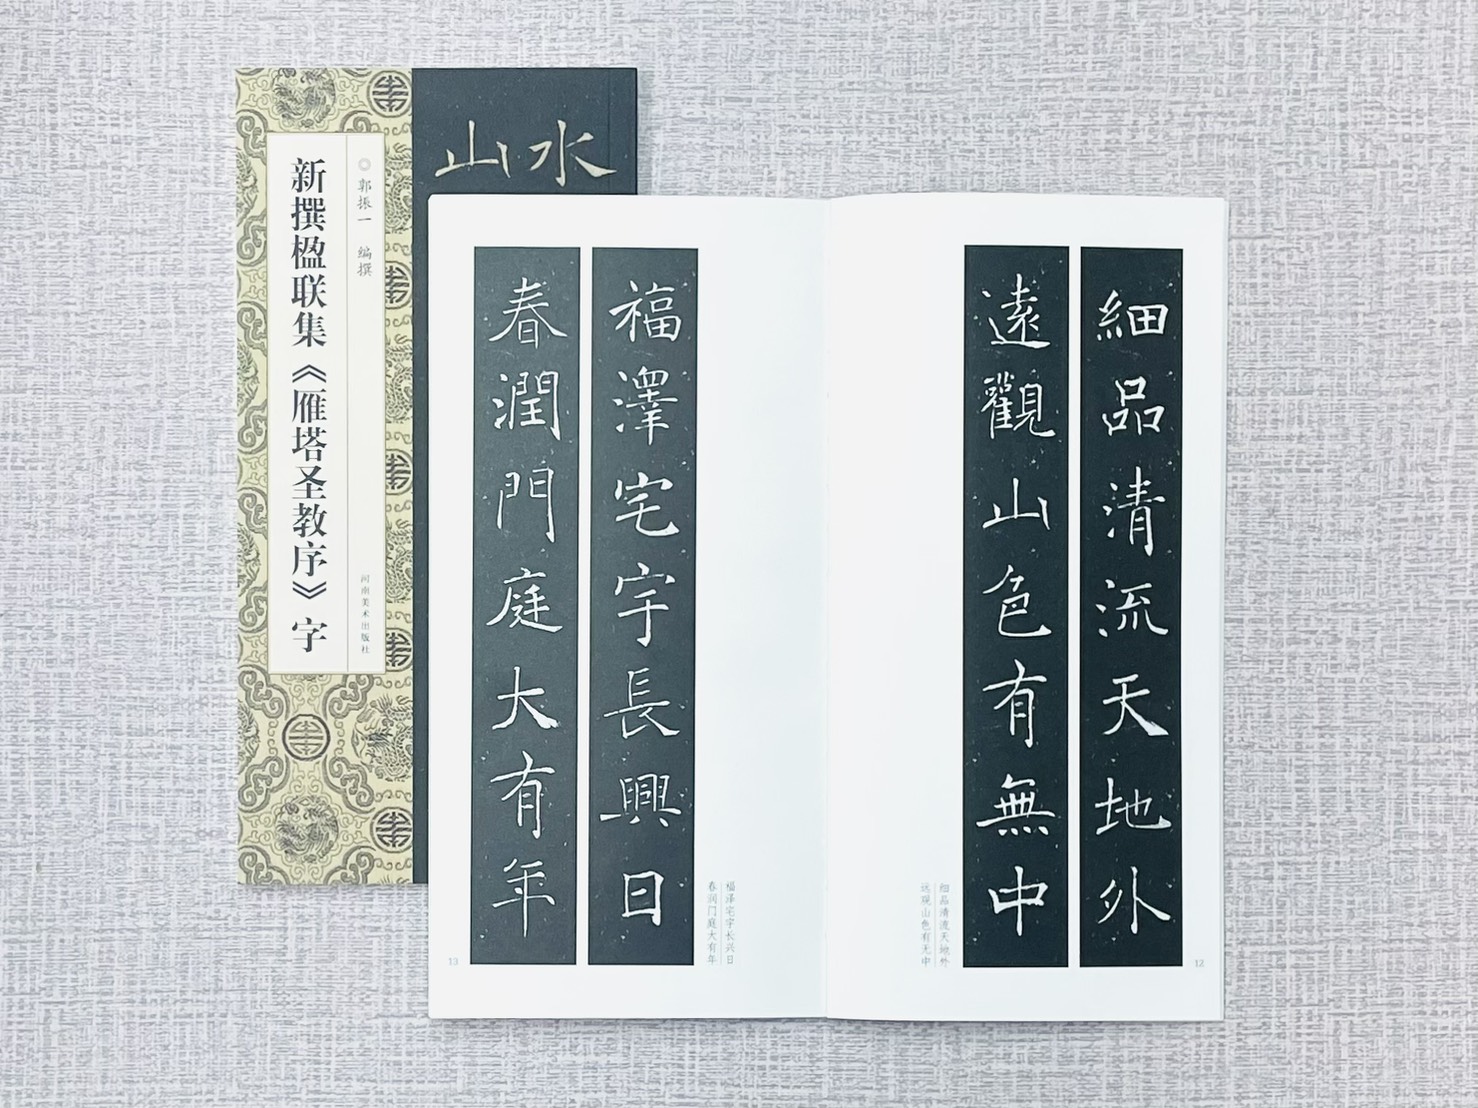 山水
新撰楹联集《雁塔圣教序》字
◎郭振一 编撰
河南美术出版社
細品清流天地外
遠觀山色有無中
细品清流天地外
远观山色有无中
12
福澤宅宇長興日
春潤門庭大有年
福泽宅宇长兴日
春润门庭大有年
13